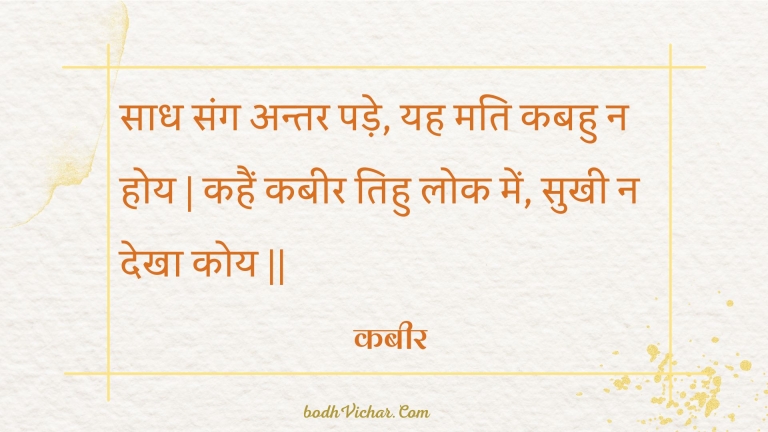 साध संग अन्तर पड़े, यह मति कबहु न
होय | कहैं कबीर तिहु लोक में, सुखी न
देखा कोय ||
कबीर
bodhVichar.Com